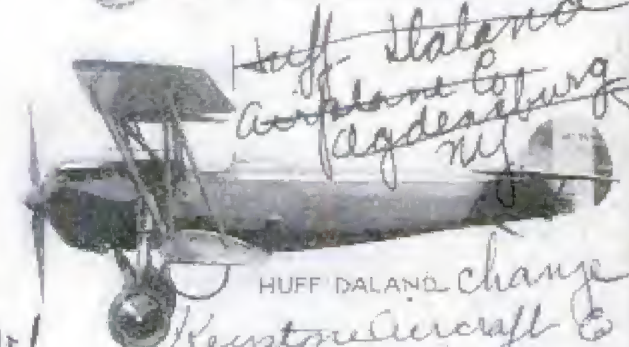 Huff Daland
Airplane Co
Ogdensburg
NY
HUFF DALAND change
Keystone Aircraft Co